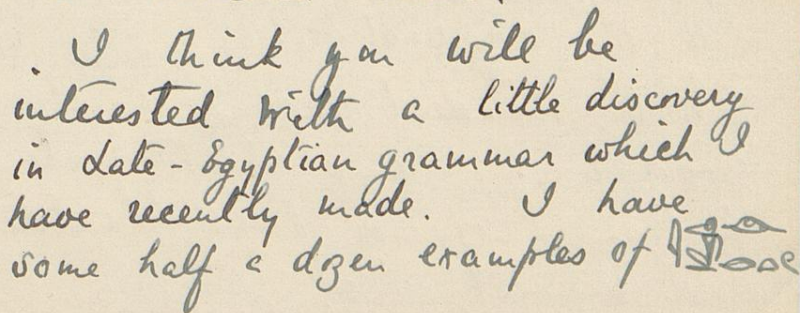 I think you will be
interested with a little discovery
in Late-Egyptian grammar which I
have recently made. I have
some half a dozen examples of